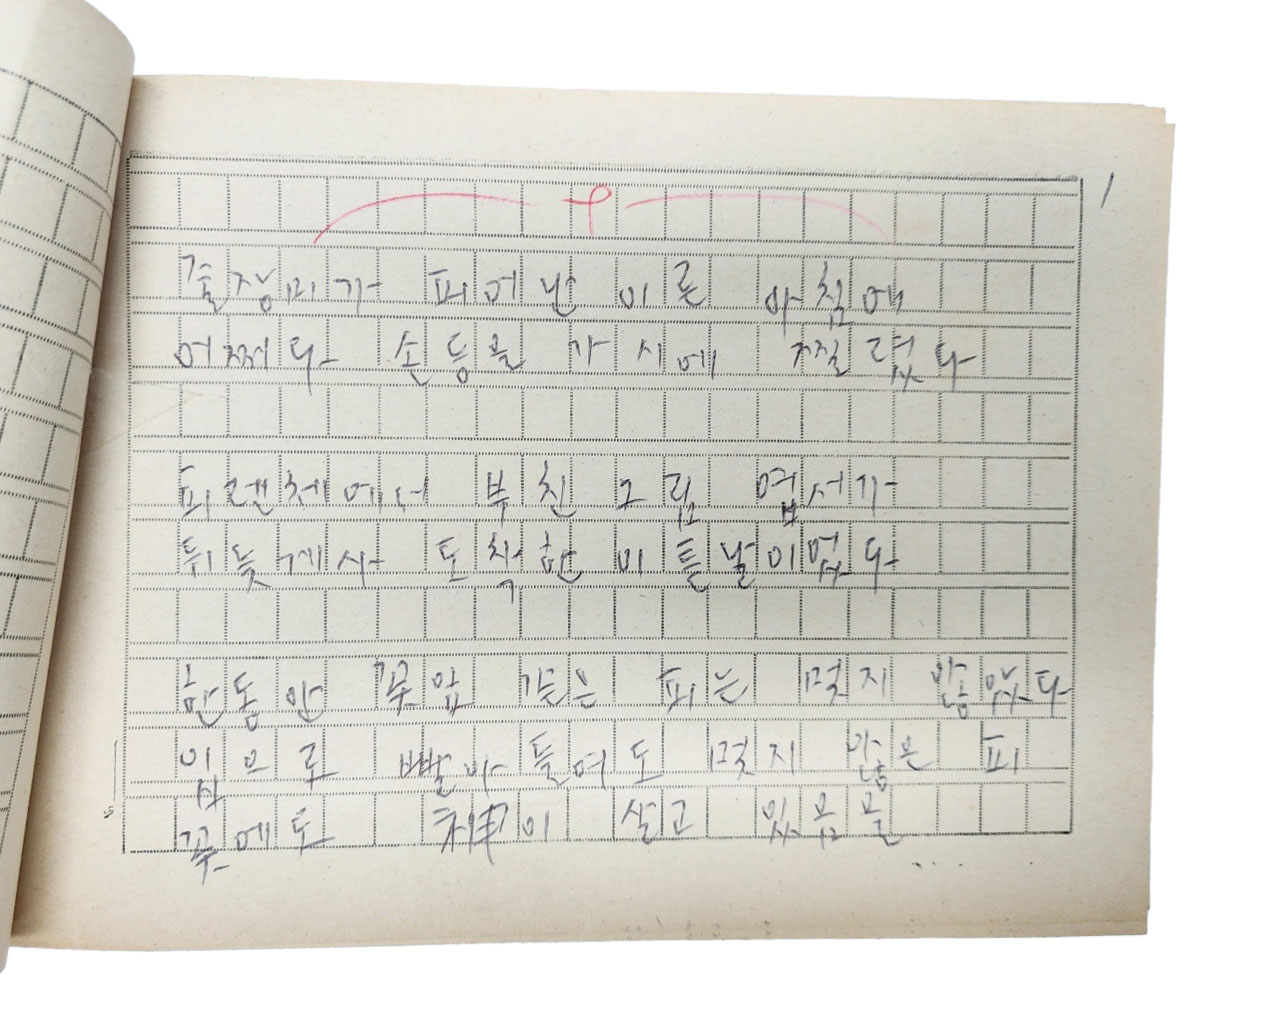 1
줄장미가 피어난 이른 아침에
어쩌다 손등을 가시에 찔렸다
피렌체에서 부친 그림 엽서가
뒤늦게사 도착한 이튿날이었다
한동안 꽃잎 같은 피는 멎지 않았다
입으로 빨아 들여도 멎지 않은 피
꽃에도 神이 살고 있음을
5